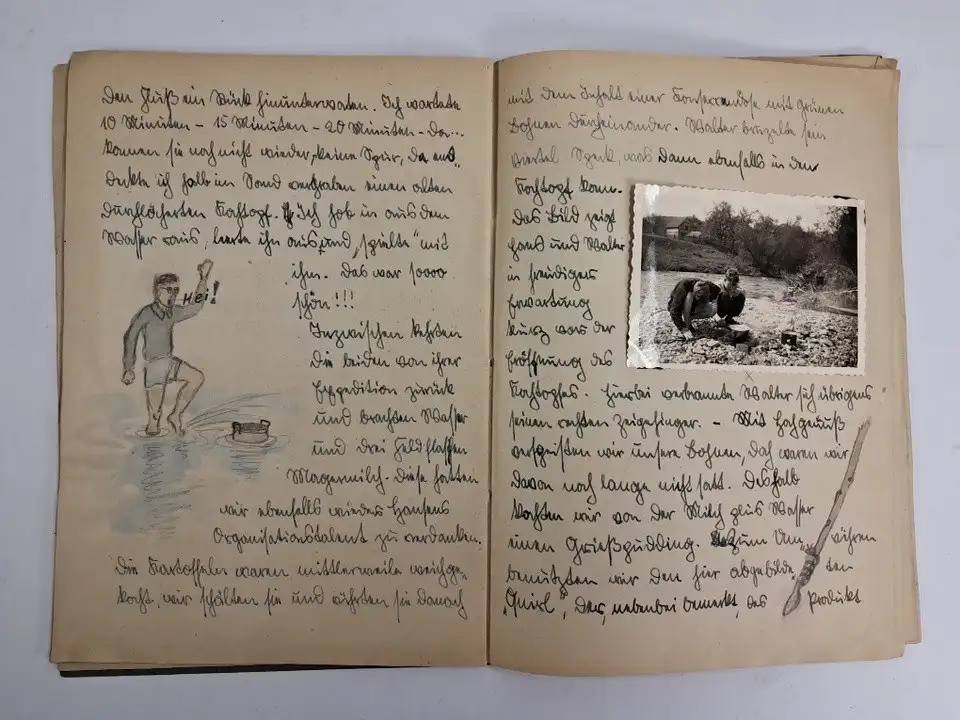 Den Fluß ein Stück hinunterwaten. Ich wartete
10 Minuten - 15 Minuten - 20 Minuten - Da...
kommen sie noch nicht wieder, keine Spur, da ent„
deckte ich halb im Sand vergraben einen alten
durchlöcherten Kochtopf. Ich hob in aus dem
Wasser raus, leerte ihn aus und „spielte“ mit
ihm. Das war soooo
schön!!!
Hei!
Inzwischen kehrten
die beiden von ihrer
Expedition zurück
und brachten Wasser
und drei Feldflaschen
Magermilch. Diese hatten
wir ebenfalls wieder Hansens
Organisationstalent zu verdanken.
Die Kartoffeln waren mittlerweile weichge„
kocht, wir schälten sie und rührten sie danach
mit dem Inhalt einer Konservendose mit grünen
Bohnen durcheinander. Walter brutzelte sein
viertel Speck, was dann ebenfalls in den
Kochtopf kam.
Das Bild zeigt
Hans und Walter
in freudiger
Erwartung
kurz vor der
Eröffnung des
Kochtopfes. Hierbei verbrannte Walter sich übrigens
seinen rechten Zeigefinger. - Mit Hochgenuß
verspeisten wir unsere Bohnen, doch waren wir
davon noch lange nicht satt. Deshalb
kochten wir von der Milch plus Wasser
einen Grießpudding. Zum Um„ rühren
benutzten wir den hier abgebilde„ ten
„Quirl“, der, nebenbei bemerkt, das Produkt